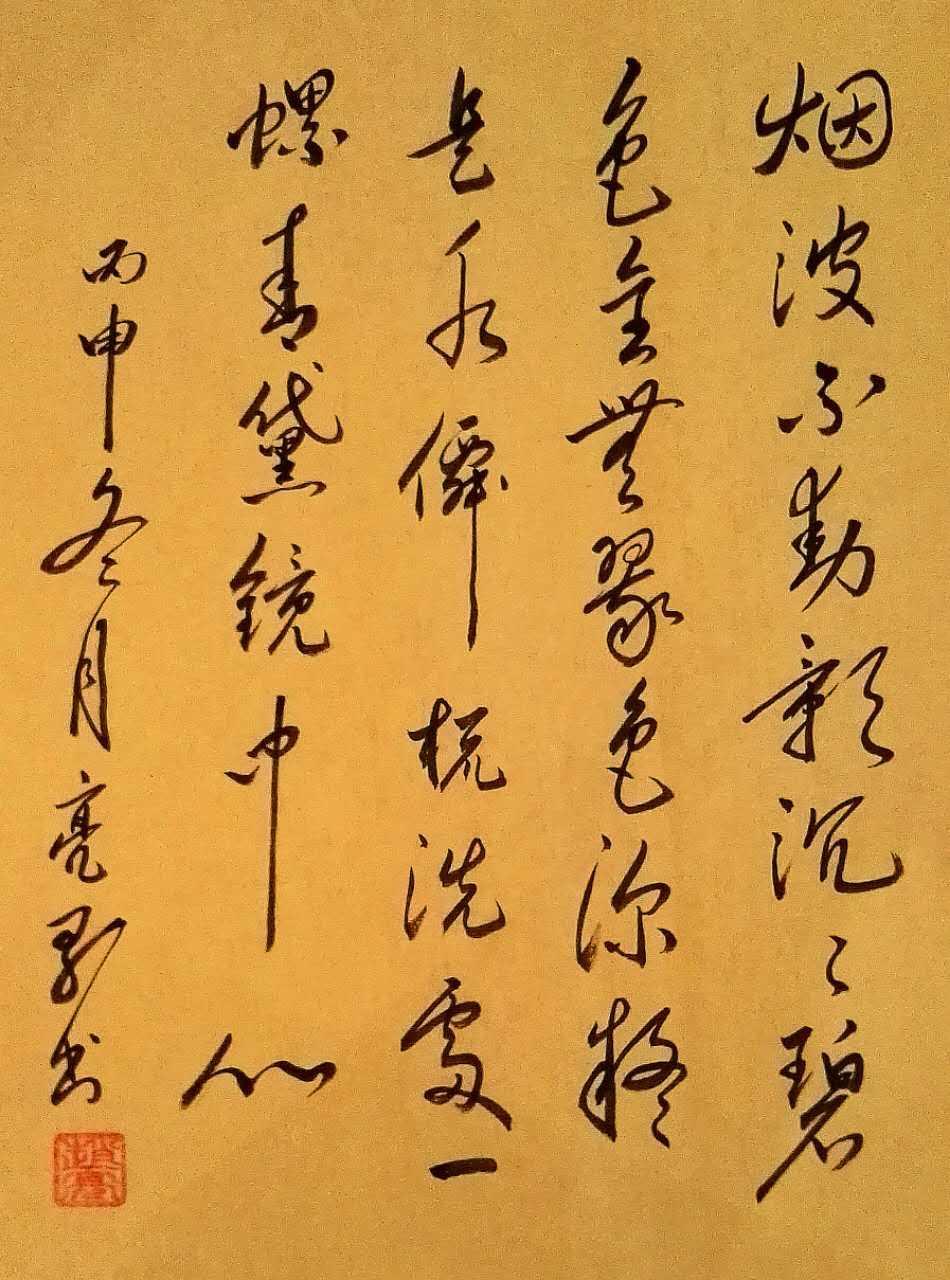 烟波不動影沉々碧
色全無翠色深疑
是水僊梳洗處一
螺青黛鏡中心
丙申冬月亮书